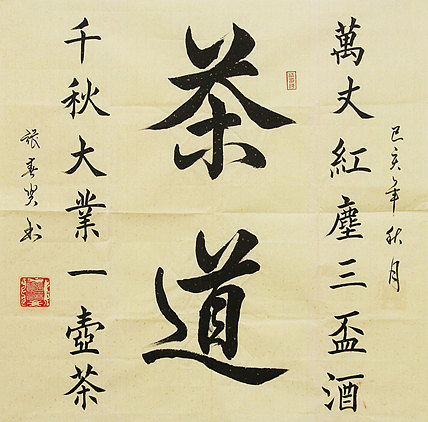 己亥年秋月
萬丈紅塵三盃酒
茶道
千秋大業一壺茶